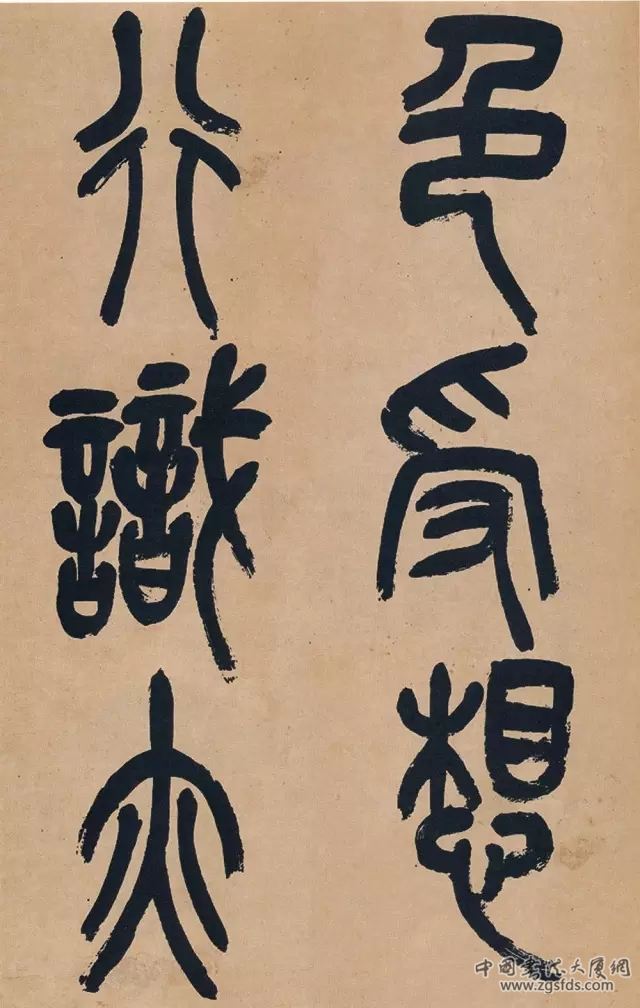 色受想
行識亦
中國書法大厦網
www.zgsfds.com